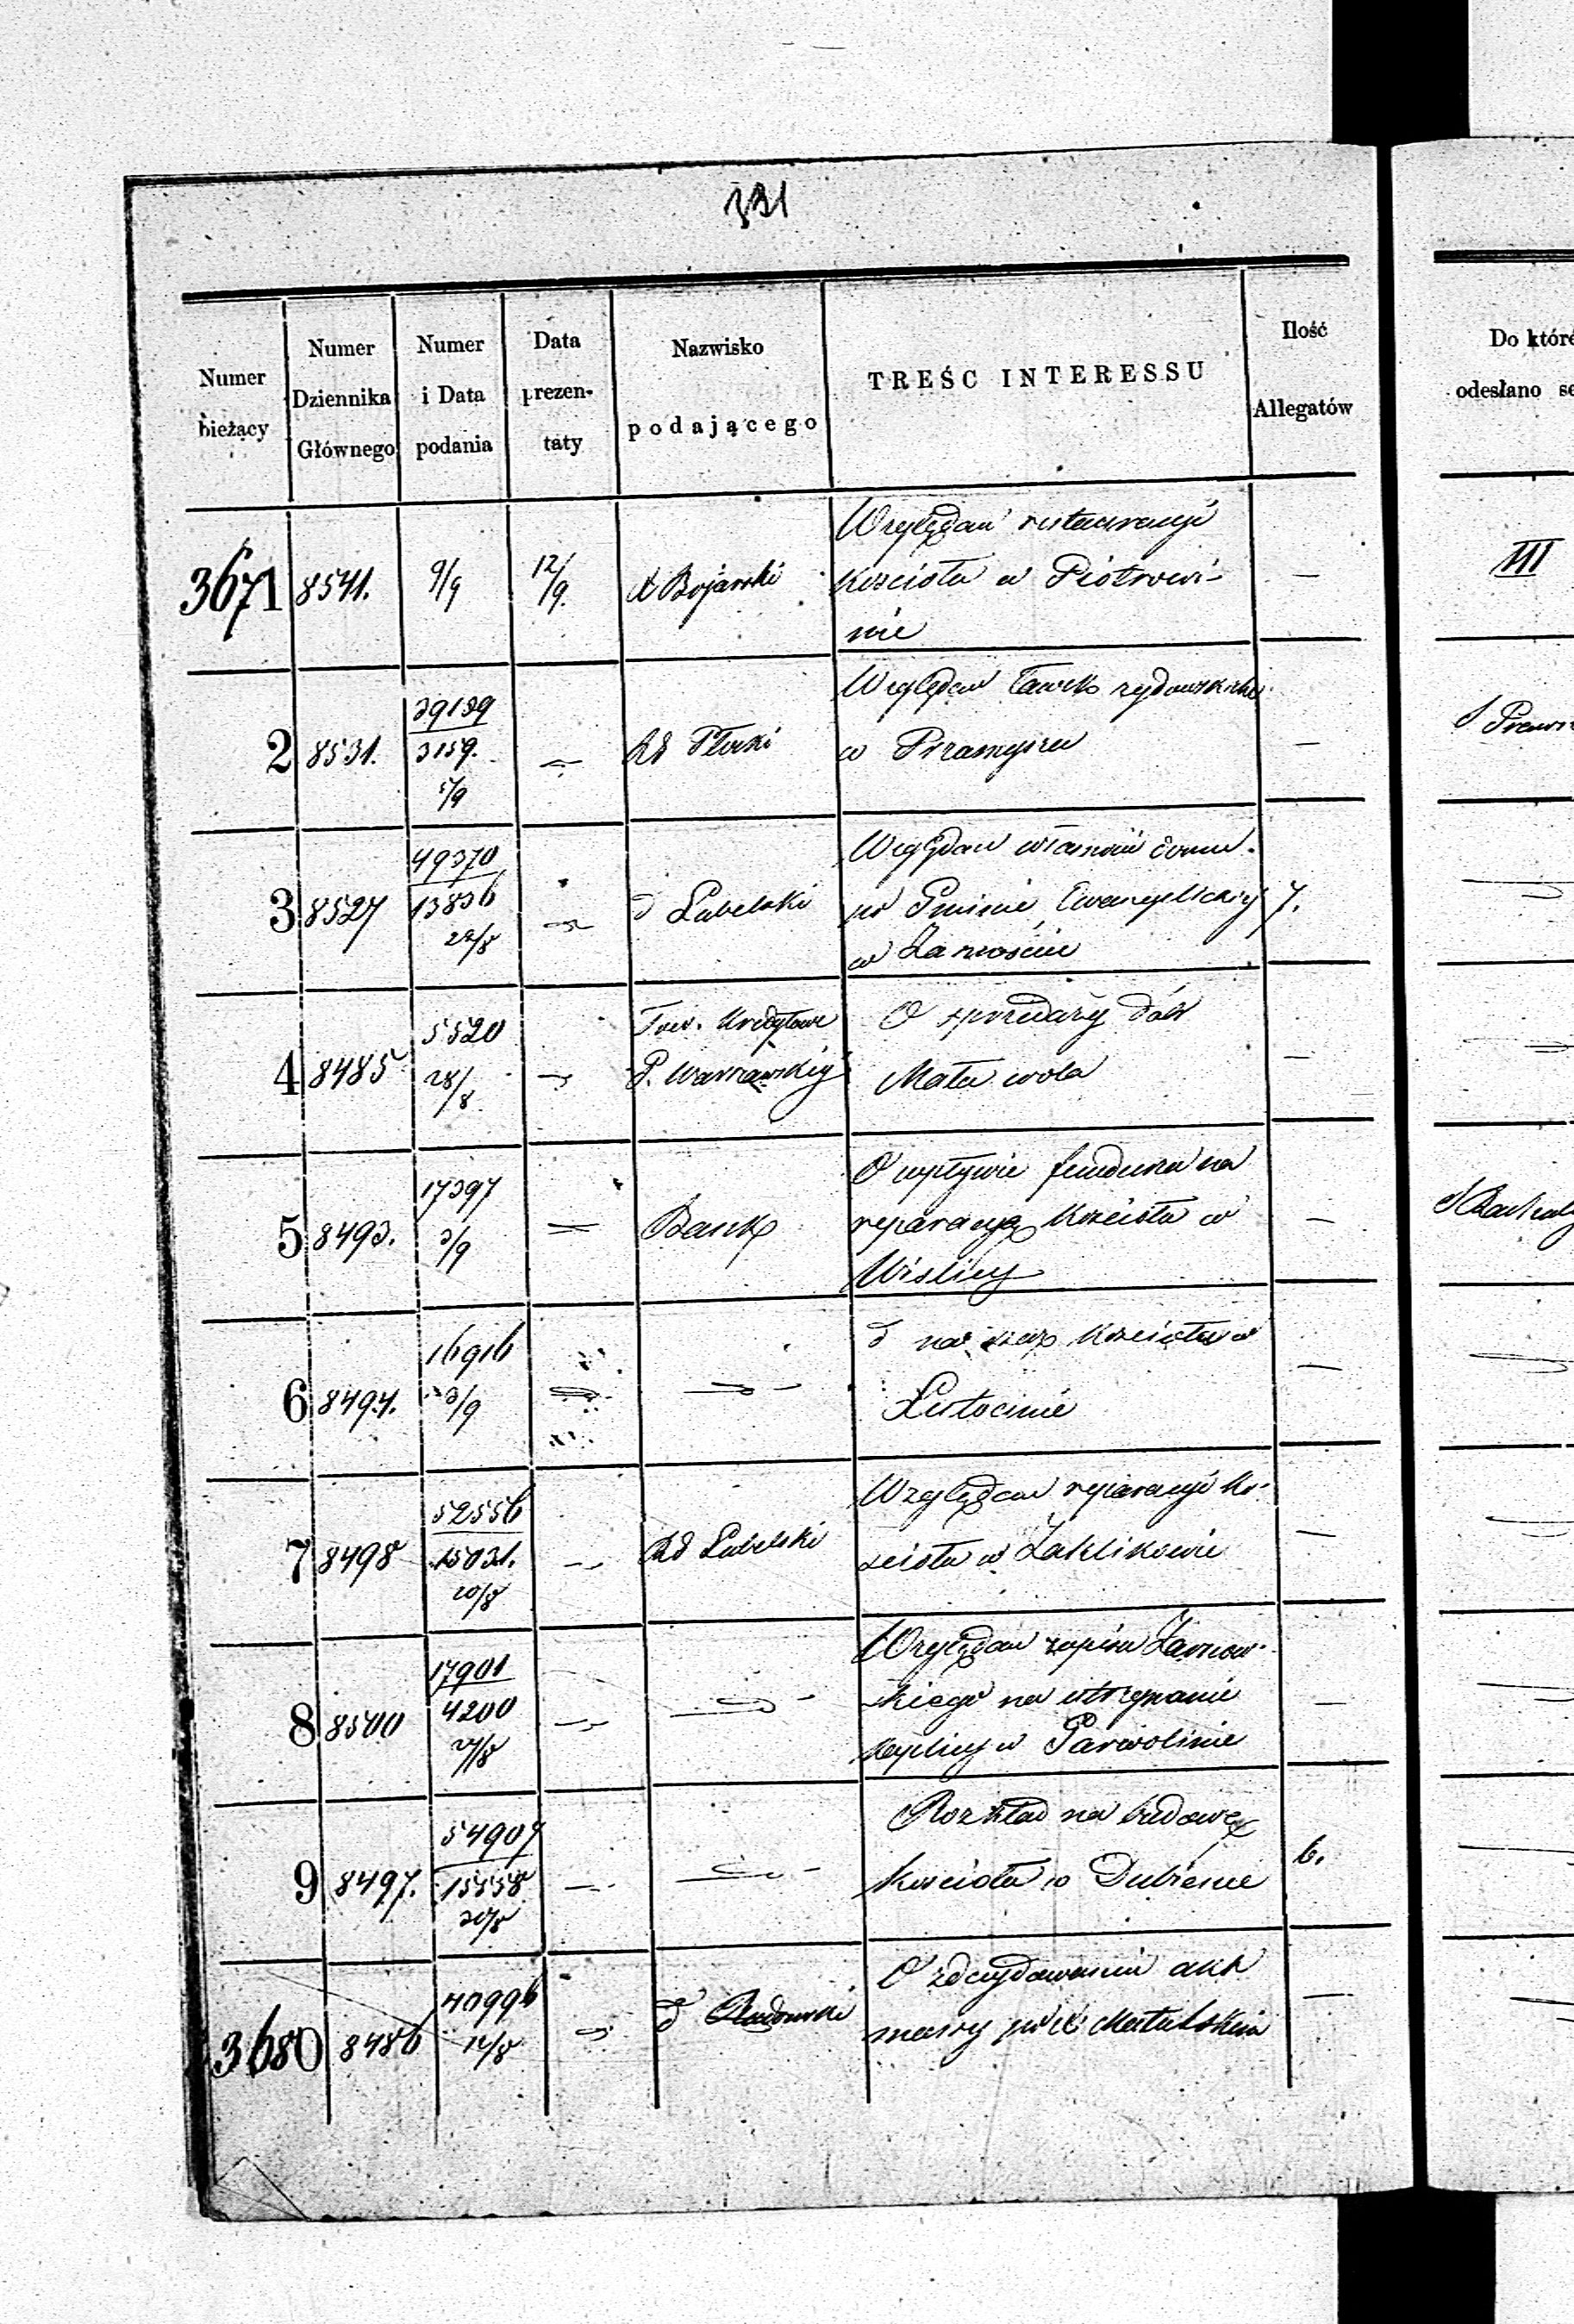 331
Numer bieżący
Numer Dziennika Głównego
Numer i Data podania
Data prezentaty
Nazwisko podającego
TREŚC INTERESSU
Ilość Allegatów
Do któré
odesłano se
3671 8541. 9/9 12/9. X Bojarski
Względem restauracyi
Kościoła w Piotrowi-
nie
—
III
2 8531. 39139 3159. 5/9 Rd Płocki
Względem Ławek żydowskich
w Przasnyszu
—
3 8527 49370 13836 22/8 d Lubelski
Względem
po Gminie Ewangelickiej
w Zamościu
7.
4 8485 5520 28/8 Tow. Kredytowe
P. Warszawskiej
O sprzedaży dóbr
Mała wola
—
5 8493. 17397 3/9 Bank
O wpływie funduszu na
reparacyą Kościoła w
Wislicy
—
6 8494. 16916 3/9
d na rzecz Kościoła w
Lutocinie
—
7 8498 52556 15031. 20/8 Rd Lubelski
Względem reparacyi Ko-
ścioła w Zaklikowie
—
8 8500 17901 4200 27/8
Względem zapisu Zarnow-
skiego na utrzymanie
kaplicy w Parwolinie
—
9 8497. 54907 15558 20/8
Rozkład na budowę
Kościoła w Dubience
6.
3680 8486 40996 12/8 d Radomski
O zdecydowaniu akt
massy po X Matulskim
—